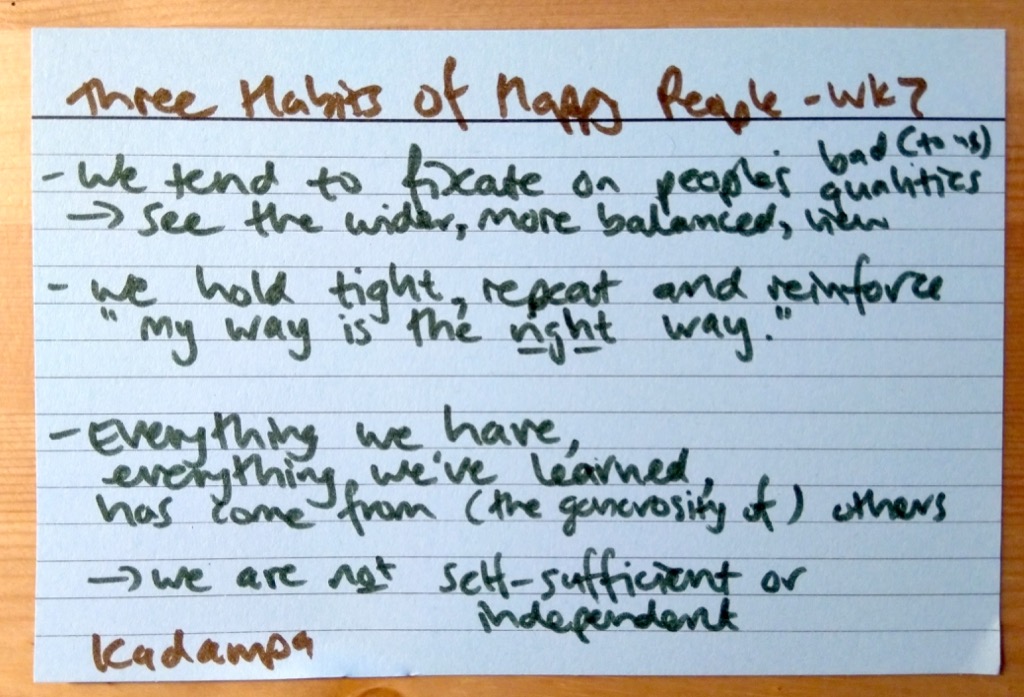 Three Habits of Happy People - Wk 7
- We tend to fixate on people's bad (to us) qualities
→ See the wider, more balanced, view
- we hold tight, repeat and reinforce
"my way is the right way."
- Everything we have,
everything we've learned,
has come from (the generosity of) others
→ we are not self-sufficient or
independent
Kadampa